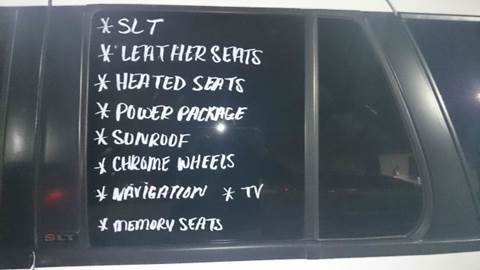 * SLT
* LEATHER SEATS
* HEATED SEATS
* POWER PACKAGE
* SUNROOF
* CHROME WHEELS
* NAVIGATION * TV
* MEMORY SEATS
SLT